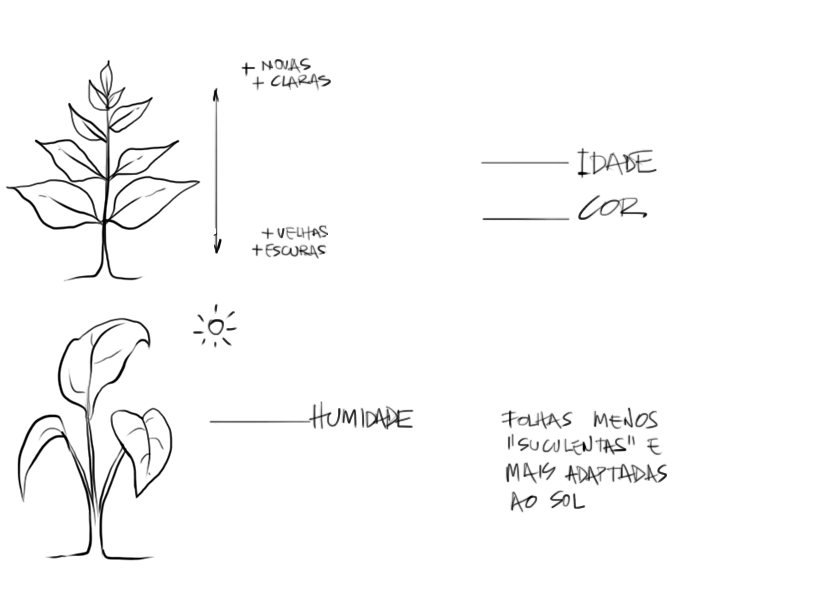 + NOVAS
+ CLARAS
IDADE
COR
+ VELHAS
+ ESCURAS
HUMIDADE
FOLHAS MENOS
"SUCULENTAS" E
MAIS ADAPTADAS
AO SOL